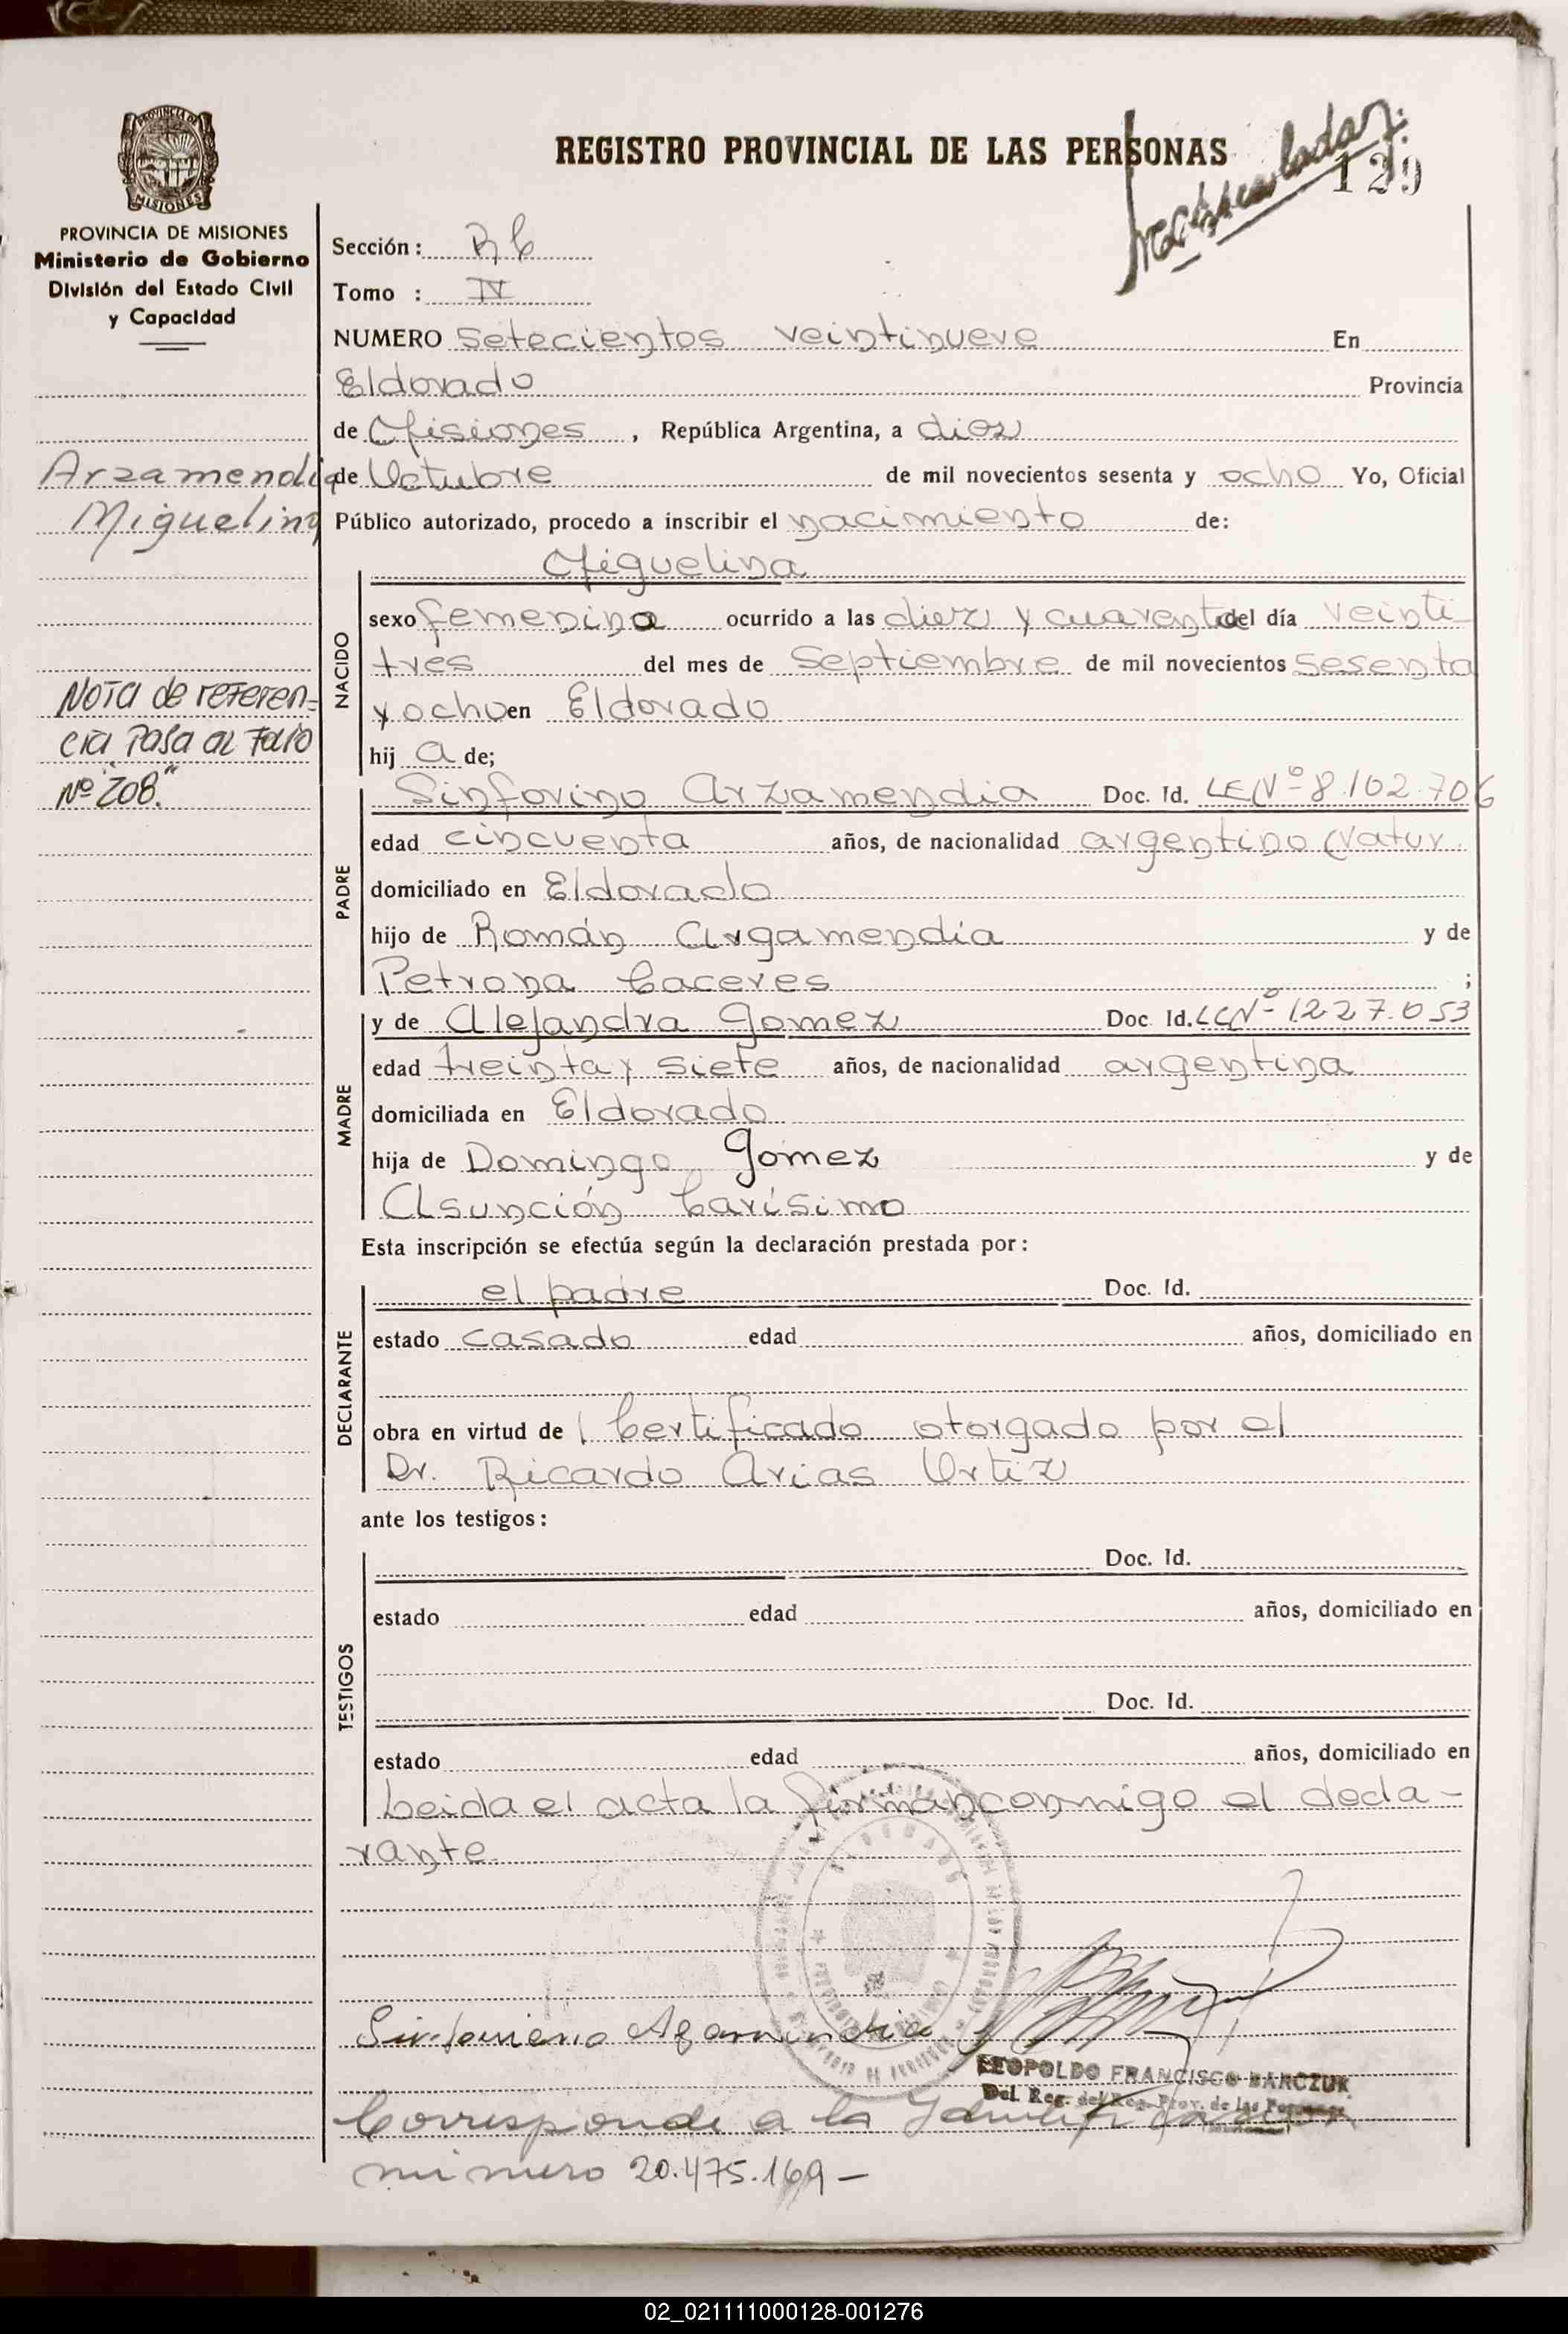 PROVINCIA DE MISIONES
Ministerio de Gobierno
División del Estado Civil
y Capacidad
Arzamendia
Miguelina
Nota de referen=
cia Pasa al Folio
Nº "208."
REGISTRO PROVINCIAL DE LAS PERSONAS
129
Sección:
Tomo : IV
NUMERO Setecientos veintinueve En
Eldorado Provincia
de Misiones , República Argentina, a diez
de Octubre de mil novecientos sesenta y ocho Yo, Oficial
Público autorizado, procedo a inscribir el nacimiento de:
NACIDO
Miguelina
sexo femenino ocurrido a las diez y cuarenta del día veinti
tres del mes de Septiembre de mil novecientos sesenta
y ocho en Eldorado
hij a de;
PADRE
Sinforino Arzamendia Doc. Id. LE Nº 8.102.706
edad cincuenta años, de nacionalidad argentino (Natur.
domiciliado en Eldorado
hijo de Román Argamendia y de
Petrona Caceres ;
MADRE
y de Alejandra Gomez Doc. Id. LC Nº 1.227.053
edad treinta y siete años, de nacionalidad argentina
domiciliada en Eldorado
hija de Domingo Gomez y de
Asunción Carísimo
Esta inscripción se efectúa según la declaración prestada por:
DECLARANTE
el padre Doc. Id.
estado casado edad años, domiciliado en
obra en virtud de Certificado otorgado por el
Dr. Ricardo Arias Ortiz
ante los testigos:
TESTIGOS
Doc. Id.
estado edad años, domiciliado en
Doc. Id.
estado edad años, domiciliado en
Leida el acta la firman conmigo el decla-
rante
LEOPOLDO FRANCISCO BARCZUK
Del. Reg. del Reg. Prov. de las Personas
Corresponde a la
numero 20.475.169 -
02_021111000128-001276